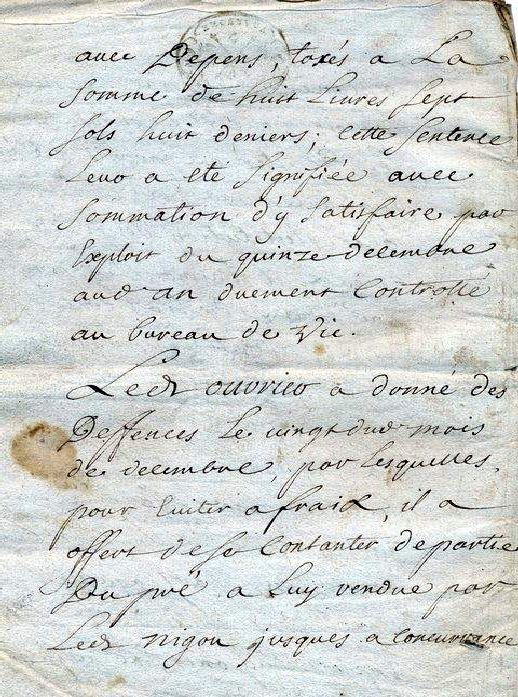 avec Depens, taxés a La
Somme de huit Livres Sept
Sols huit deniers; cette Sentence
Leur a eté Signifiée avec
Sommation d'y Satisfaire par
Exploit du quinze decembre
aud an duement Controllé
au bureau de Vic.
Ledt ouvrier a donné des
Deffences Le vingt dud mois
de decembre, par Lesquelles,
pour Eviter a fraix, il a
offert de se Contanter de partie
Du pré a Luy vendue par
Ledt nigou jusques a Concurrance